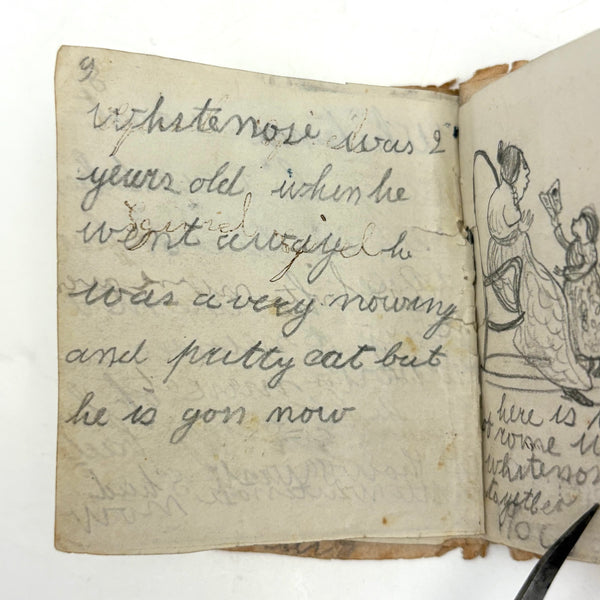 9
whitenose was 2
years old when he
went away he
was a very nowing
and pritty cat but
he is gon now
here is
rome
whitenos
10